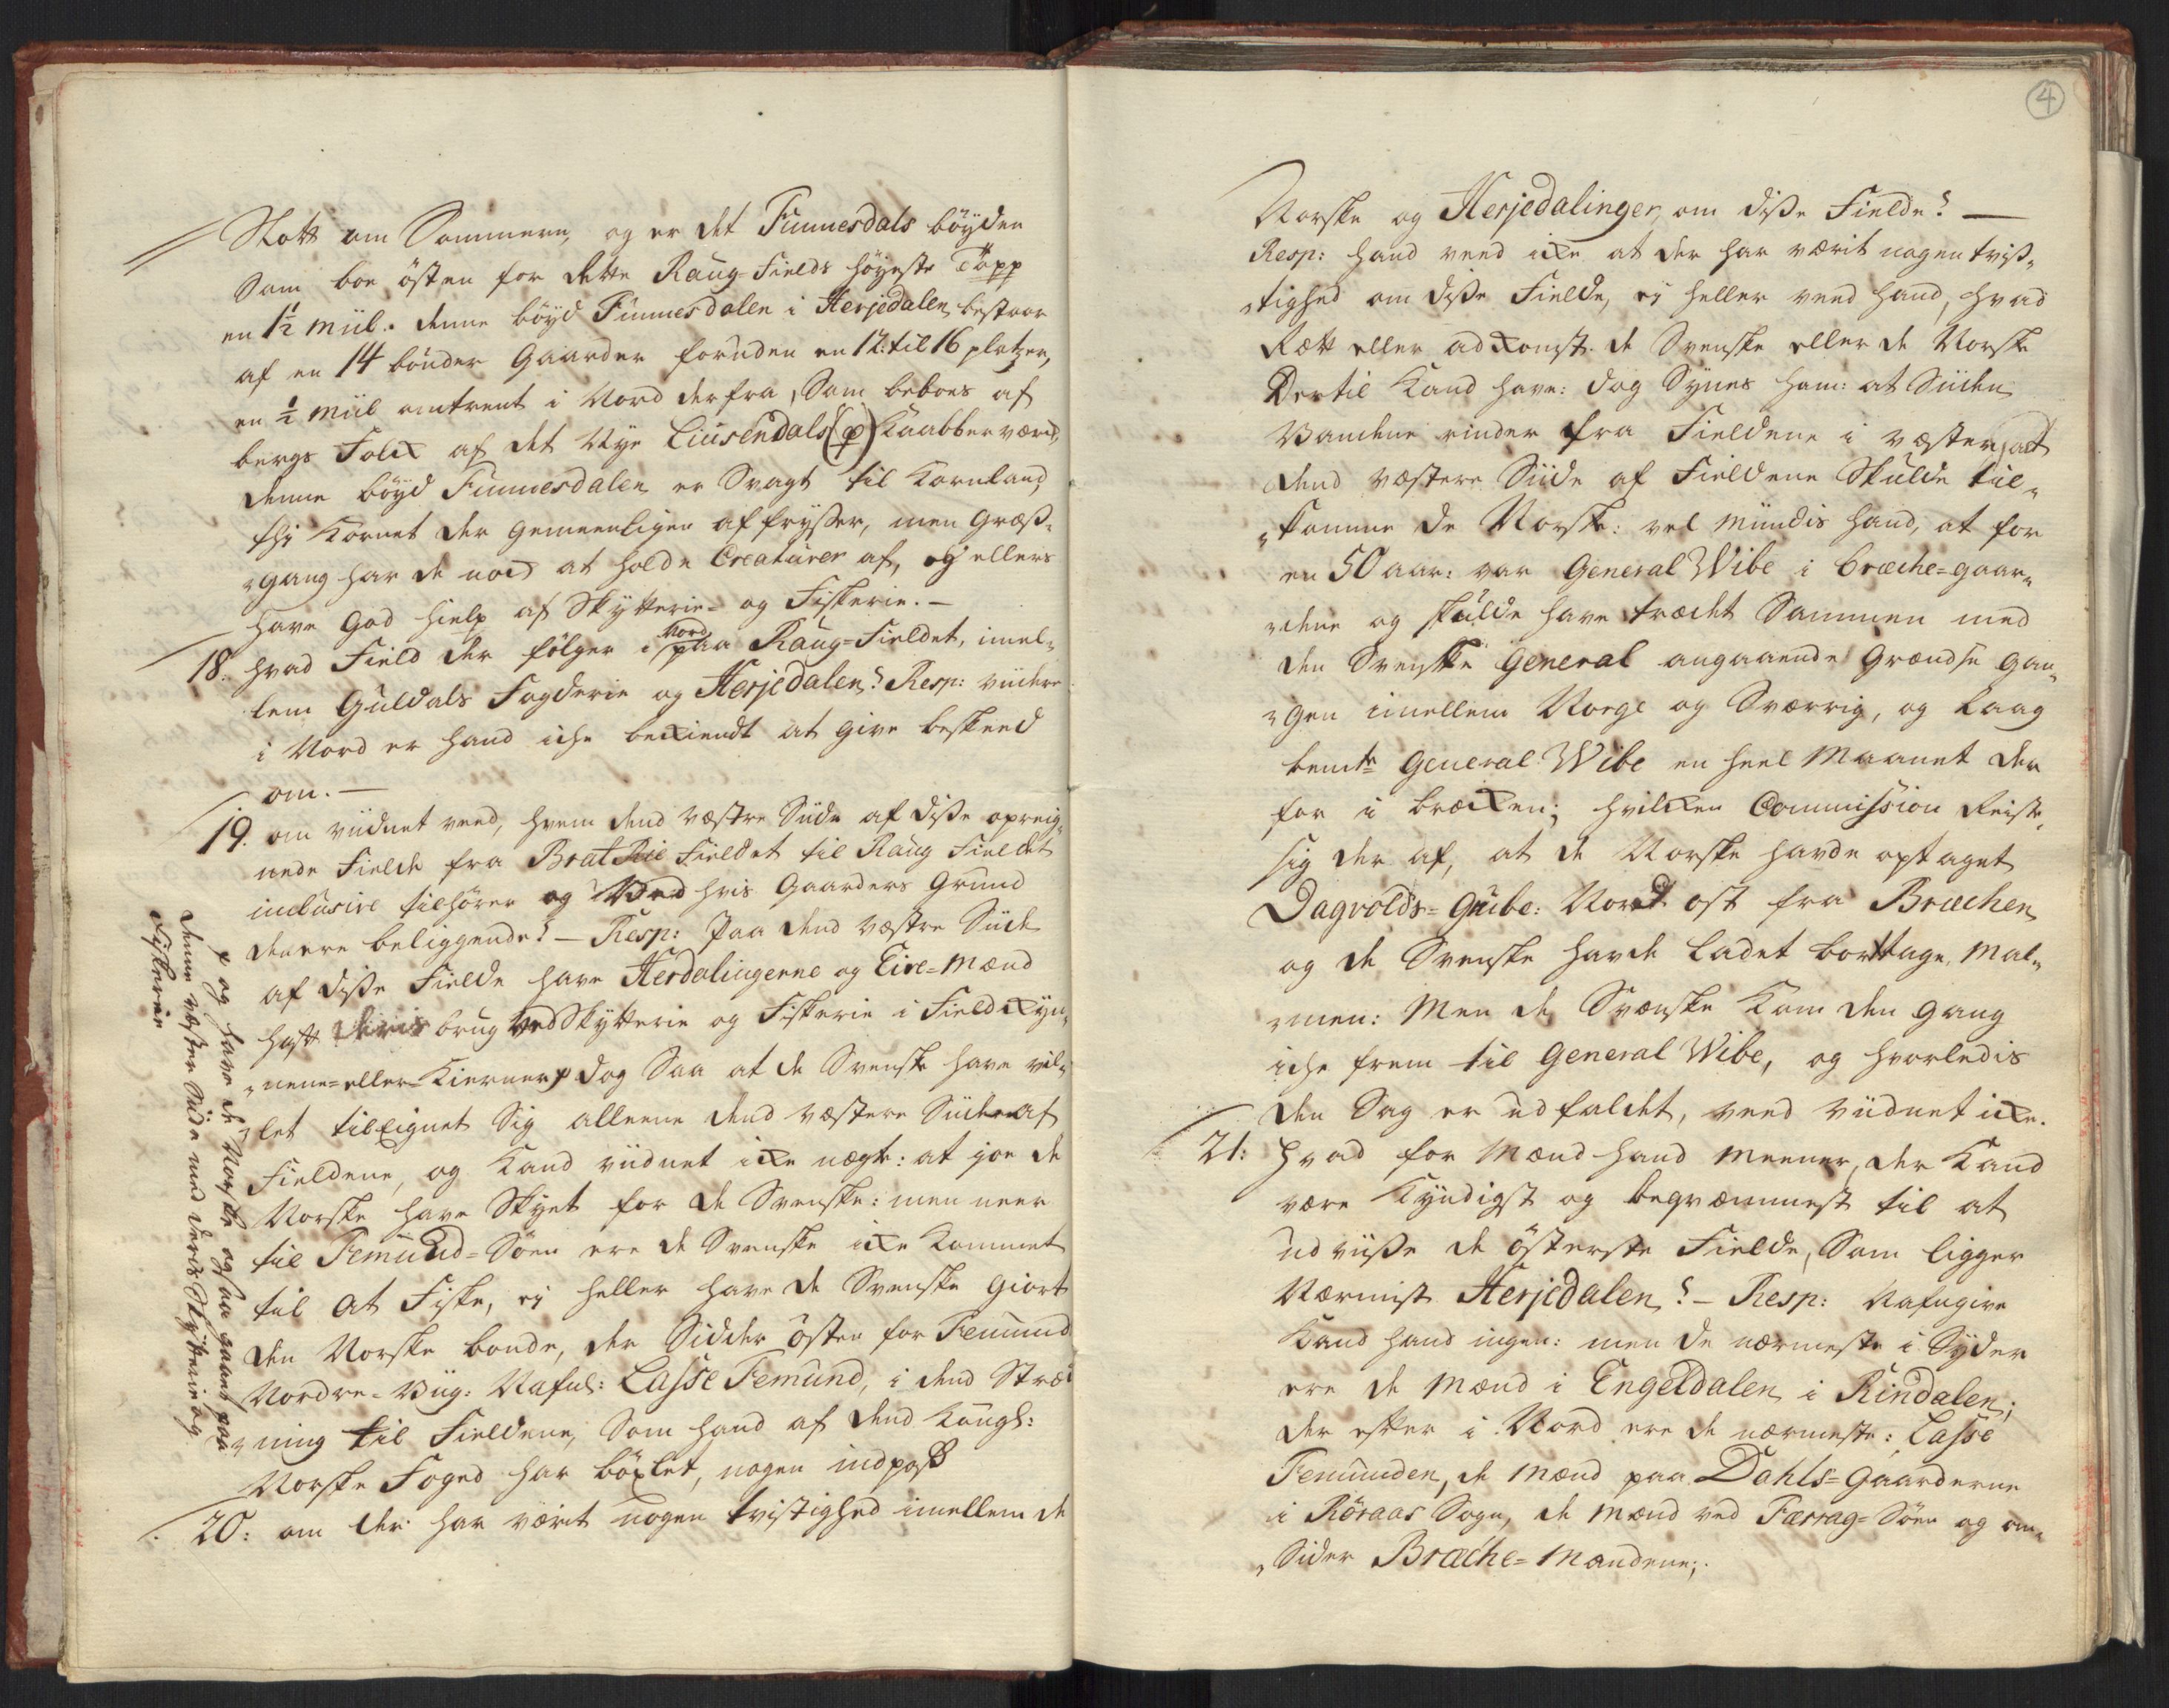 Slott om Sommeren, og er det Funnesdals böyden
Som boe östen for dette Raug-Fields höyeste Topp
en 1½ miil. denne böyd Funnesdalen i Herjedalen bestaar
af en 14 bönder Gaarder foruden en 12: til 16 platzer,
en ½ miil omtrent i Nord derfra, Som beboes af
bergs Folck af det Nye Liusendals (p) Kaabberværck,
denne böyd Funnesdalen er Svagt til Kornland,
thi Kornet der gemeenligen affryser, men Græs-
gang har de nock at holde Creaturer af, og ellers
have God hielp af Skytterie- og Fiskerie. —
18. hvad Field der fölger i Nord paa Raug-Fieldet, imel-
lem Guldals Fogderie og Herjedalen? Resp: viidere
i Nord er hand iche beckiendt at give beskeed
om. —
19. om viidnet veed, hvem dend væstre Siide af disse opreig-
nede Fielde fra BratRie Fieldet til Raug Fieldet
inclusive tilhörer og Ved hvis Gaarders Grund
de ere beliggende? — Resp: Paa dend væstre Siide
af disse Fielde have Herdalingerne og Eire-Mænd
hafft deris brug Ved Skytterie og Fiskerie i Fieldkyn-
nene- eller Kierner p dog Saa at de Svenske have vil-
let tilEignet Sig alleene dend væstere Siide af
Fieldene, og Kand viidnet icke nægte: at joe de
Norske have Skyet for de Svenske: men neer
til Femund-Söen ere de Svenske icke Kommet
til at Fiske, ej heller have de Svenske giort
den Norske bonde, der Sidder östen for Femund
Nordre-Viig: Nafnl: Lasse Femund, i dend Stræk-
ning til Fieldene, Som hand af dend Kongl:
Norske Foged har böxlet, nogen indpass
20: om der har værit nogen tvistighed imellem de
p og have de Norske ogsaa gaaet paa
denne væster Siide med deris Skytterie og
Fiskerie
4
Norske og Herjedalinger om disse Fielde? —
Resp: hand veed icke at der har værit nogen tvis-
tighed om disse Fielde, ej heller veed hand, hvad
Rætt eller adkomst de Svenske eller de Norske
Dertil Kand have: dog Synes ham: at Siiden
Vandene rinder fra Fieldene i væster, at
dend væstere Siide af Fieldene Skulde til-
komme de Norske: vel mindis hand, at for
en 50 aar: var General Wibe i bræche-gaar-
dene og skulde have trædet Sammen med
den Svenske General angaaende Grændse gan-
gen imellem Norge og Sværrig, og laag
bemte General Wibe en heel Maanet der
for i bræcken; hvilcken Commission Reiste
sig der af, at de Norske havde optaget
Dagvolds-Grube: Nord ost fra Bræchen
og de Svenske havde ladet borttage Mal-
men: Men de Svenske Kom den gang
iche frem til General Wibe, og hvorledis
den Sag er udfaldet, veed viidnet icke.
21: hvad for Mænd hand meener, der Kand
være Kyndigst og beqvæmmest til at
udviise de österste Fielde, Som ligger
Nærmist Herjedalen? — Resp: Nafngive
Kand hand ingen: men de nærmeste i Syder
ere de Mænd i Engeldalen i Rindalen;
der efter i Nord ere de nærmeste: Lasse
Femunden, de Mænd paa Dahls-Gaarderne
i Röraas Sogn, de Mænd ved Færrag-Söen og om-
sider Bræche-Mændene;